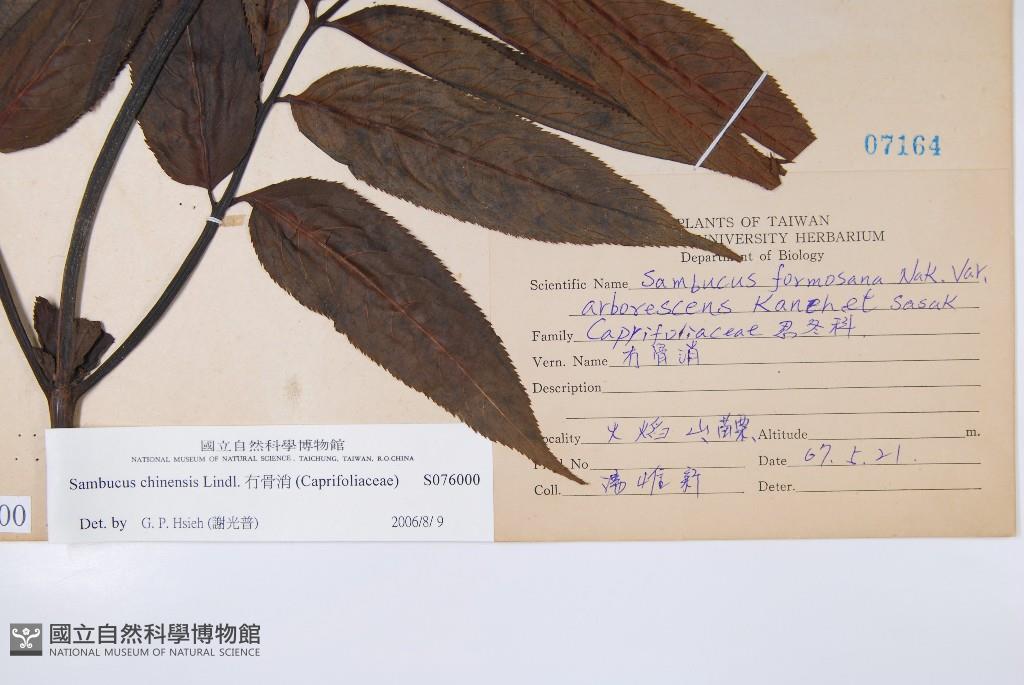 07164
PLANTS OF TAIWAN
UNIVERSITY HERBARIUM
Department of Biology
Scientific Name Sambucus formosana Nak. Var.
arborescens Kanehet Sasak
Family Caprifoliaceae 忍冬科
Vern. Name 冇骨消
Description
Locality 火焰山 苗栗、 Altitude m.
No Date 67.5.21.
Coll. 湯惟新 Deter.
國立自然科學博物館
NATIONAL MUSEUM OF NATURAL SCIENCE, TAICHUNG, TAIWAN, R.O.CHINA
Sambucus chinensis Lindl. 冇骨消 (Caprifoliaceae) S076000
Det. by G. P. Hsieh (謝光普) 2006/8/ 9
00
國立自然科學博物館
NATIONAL MUSEUM OF NATURAL SCIENCE